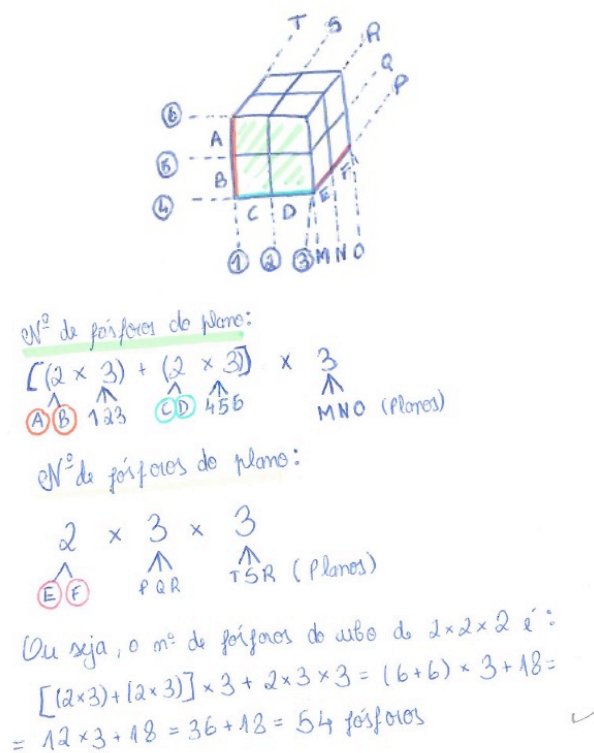 T S R
Q
P
6
A
5
B
4
C D E F
1 2 3 M N O
Nº de fósforos do plano:
[(2 × 3) + (2 × 3)] × 3
A B 1 2 3 C D 4 5 6 M N O (Planos)
Nº de fósforos do plano:
2 × 3 × 3
E F P Q R T S R (Planos)
Ou seja, o nº de fósforos do cubo de 2×2×2 é:
[(2×3)+(2×3)]×3+2×3×3=(6+6)×3+18=
= 12×3+18=36+18=54 fósforos